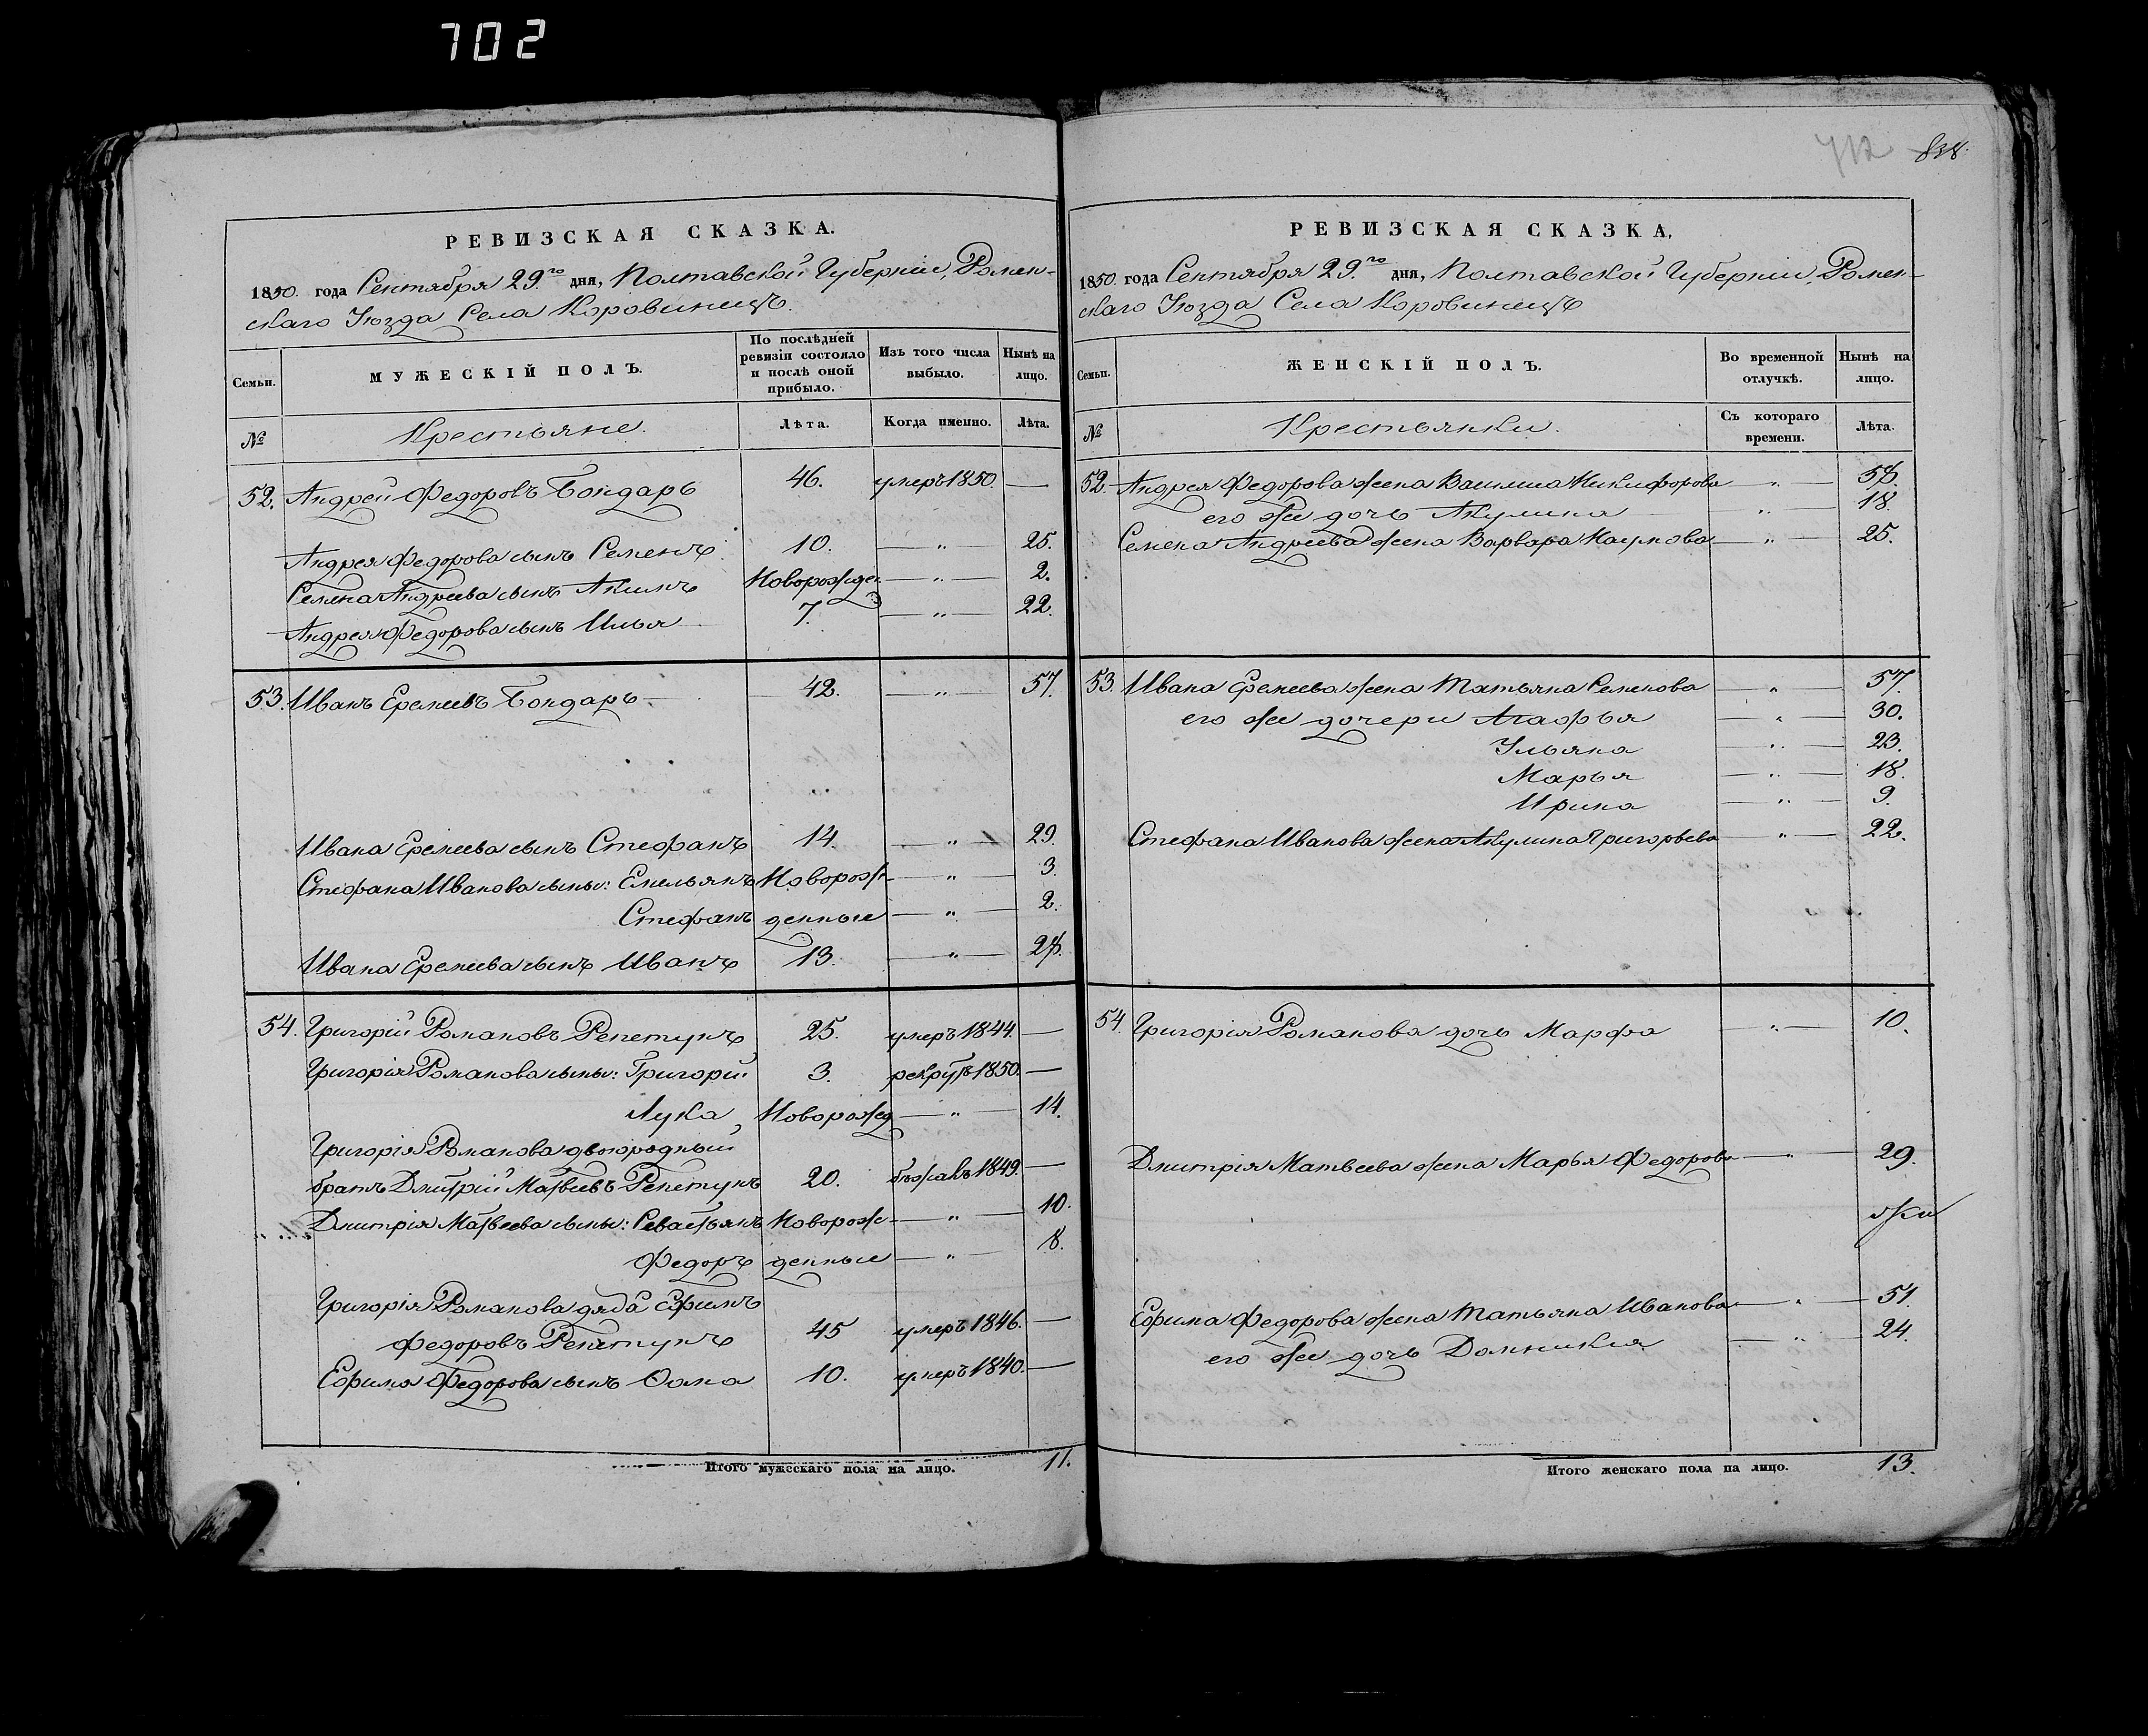 702
712 838.
РЕВИЗСКАЯ СКАЗКА.
1850. года Сентября 29го дня, Полтавской Губерніи, Ромен-
скаго Уѣзда Села Коровинецъ.
Семьи.
МУЖЕСКІЙ ПОЛЪ.
По послѣдней ревизіи состояло и послѣ оной прибыло.
Изъ того числа выбыло.
Нынѣ на лицо.
№
Крестьяне.
Лѣта.
Когда именно.
Лѣта.
52. Андрей Федоровъ Бондарь 46. умеръ 1850. —
Андрея Федорова сынъ Семенъ 10. — „ — 25.
Семена Андреева сынъ Акимъ Новорожден — „ — 2.
Андрея Федорова сынъ Илья 7. — „ — 22.
53. Иванъ Еремеевъ Бондарь 42. — „ — 57.
Ивана Еремеева сынъ Стефанъ 14. — „ — 29.
Стефана Иванова сыны: Емельянъ Новорож- — „ — 3.
Стефанъ денные — „ — 2.
Ивана Еремеева сынъ Иванъ 13. — „ — 28.
54. Григорій Романовъ Репетунъ 25. умеръ 1844. —
Григорія Романова сыны: Григорій 3. рекрутъ 1850. —
Лука Новорожд — „ — 14.
Григорія Романова двоюродный
братъ Дмитрій Матвеевъ Репетунъ 20. бѣжавъ 1849. —
Дмитрія Матвеева сыны: Севастьянъ Новорож- — „ — 10.
Федоръ денные — „ — 8.
Григорія Романова дядя Ефимъ
Федоровъ Репетунъ 45 умеръ 1846. —
Ефима Федорова сынъ Фома 10. умеръ 1840. —
Итого мужескаго пола на лицо. 11.
РЕВИЗСКАЯ СКАЗКА.
1850. года Сентября 29.го дня, Полтавской Губерніи, Ромен-
скаго Уѣзда Села Коровинецъ
Семьи.
ЖЕНСКІЙ ПОЛЪ.
Во временной отлучкѣ.
Нынѣ на лицо.
№
Крестьянки.
Съ котораго времени.
Лѣта.
52. Андрея Федорова жена Васылиса Никифорова — „ — 58.
его же дочь Акулина „ 18.
Семена Андреева жена Варвара Наумова — „ — 25.
53. Ивана Еремеева жена Татьяна Семенова — „ — 57.
его же дочери Агафья — „ — 30.
Ульяна — „ — 23.
Марья — „ — 18.
Ирина — „ — 9.
Стефана Иванова жена Акулина Григорьева — „ — 22.
54. Григорія Романова дочь Марфа „ — 10.
Дмитрія Матвеева жена Марья Федорова — „ — 29.
Ефима Федорова жена Татьяна Иванова — „ — 51.
его же дочь Домникия — „ — 24.
Итого женскаго пола на лицо. 13.